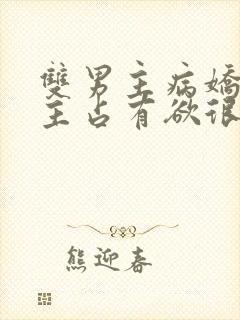 雙男主病嬌
主占有欲很
熊迎春